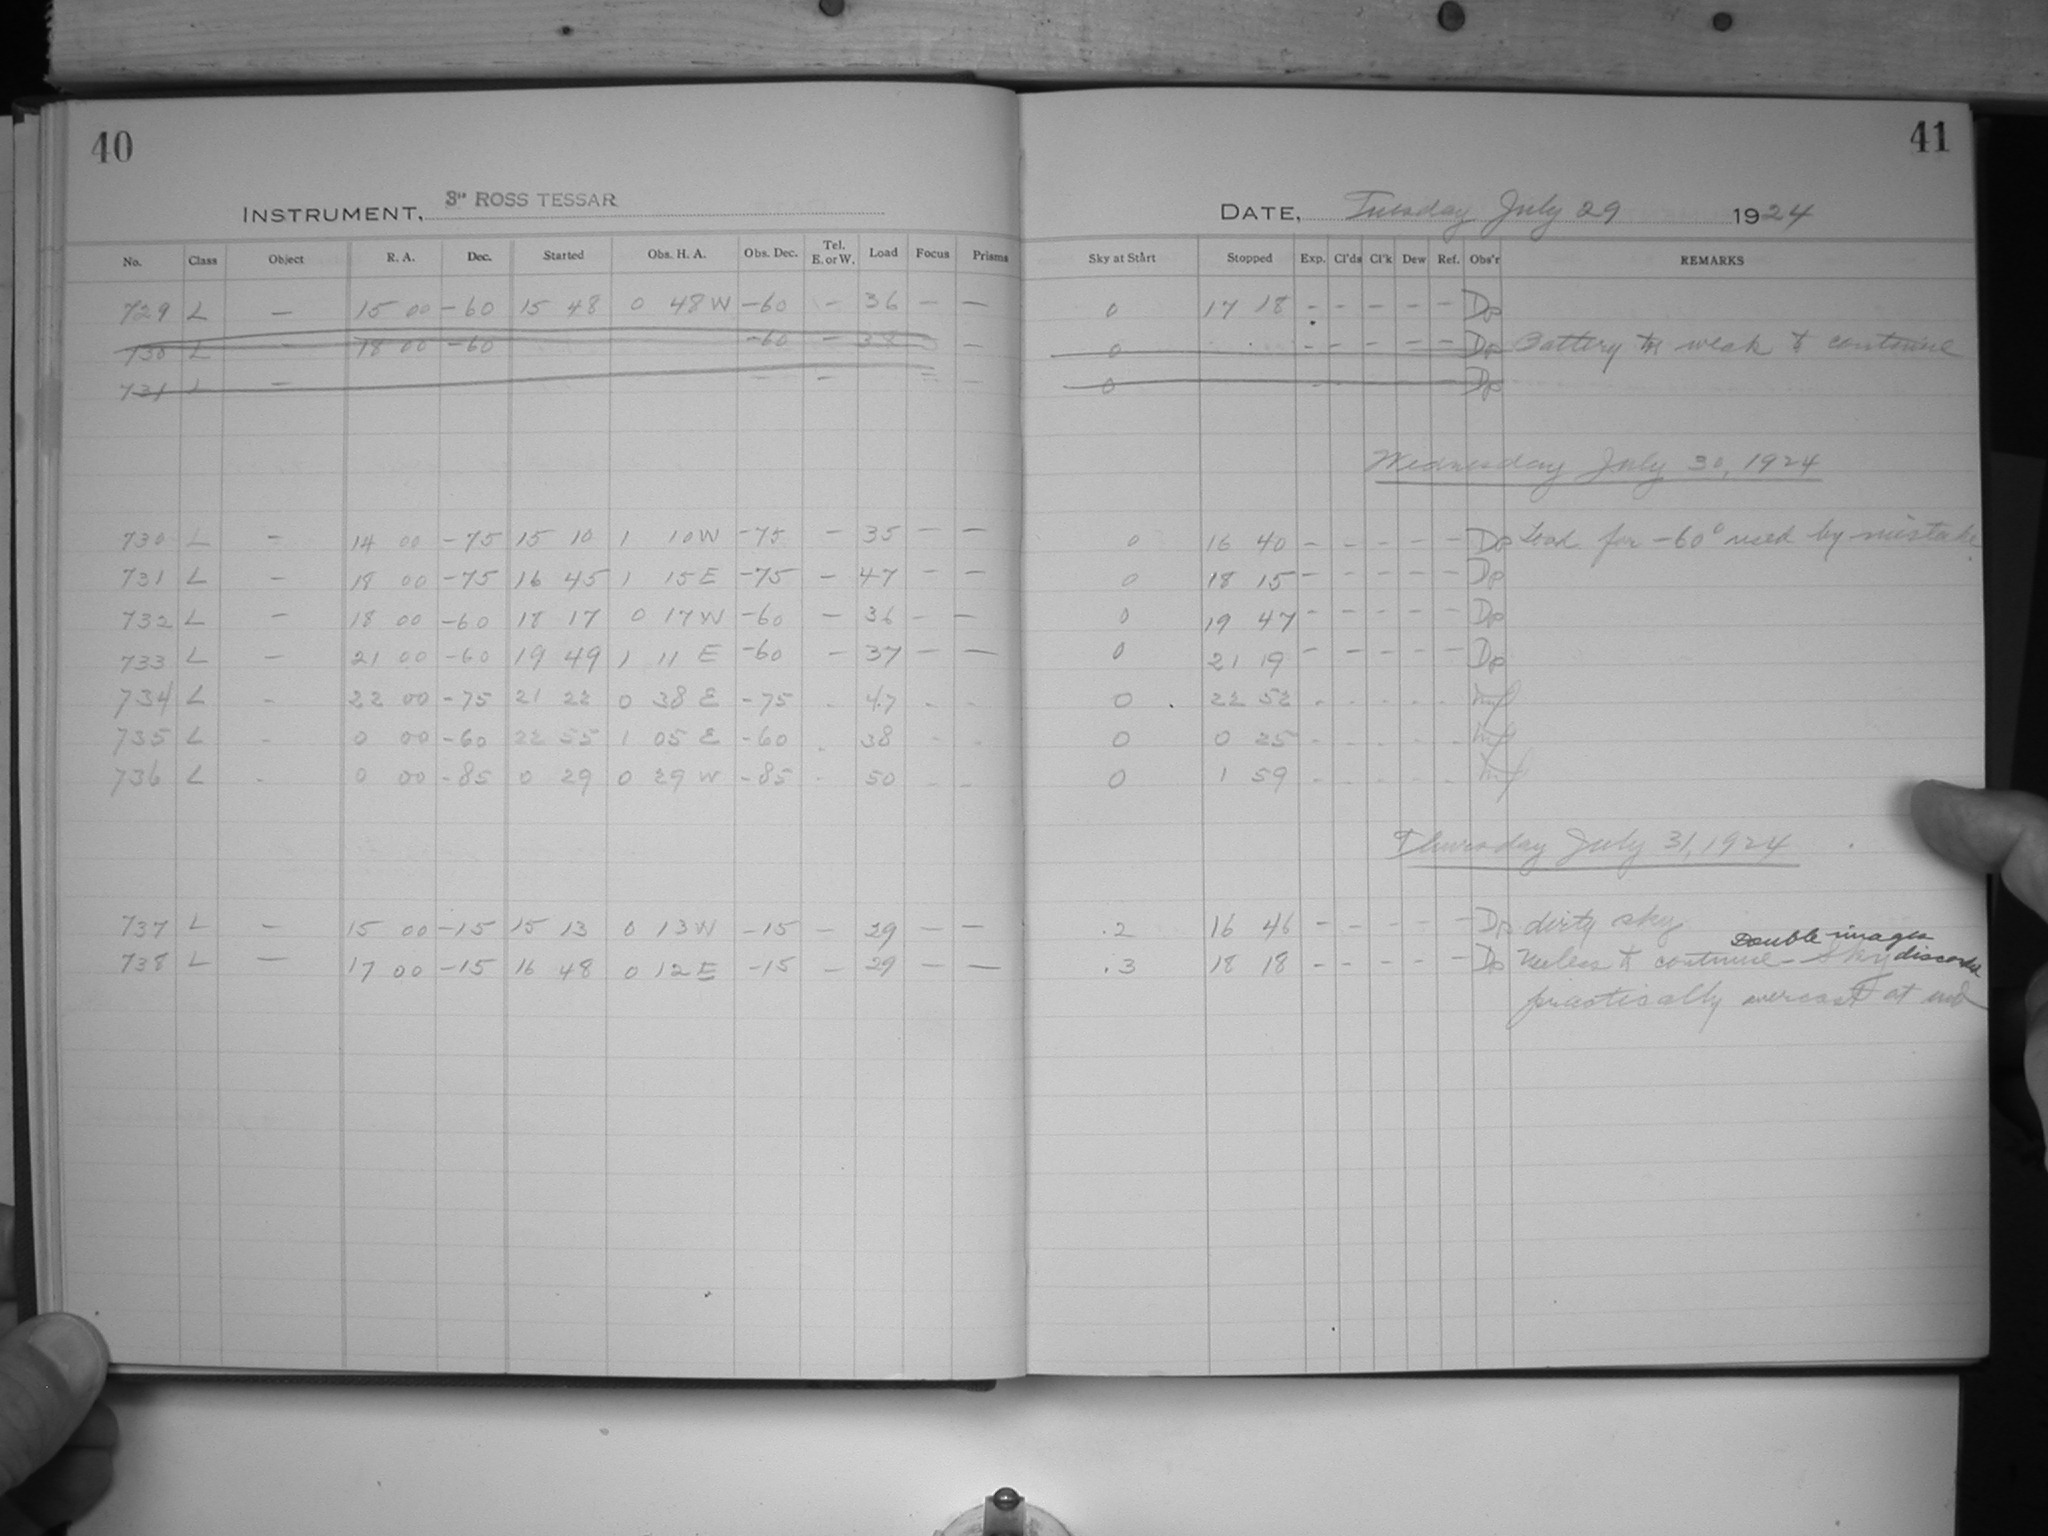 40
41
INSTRUMENT, 3" ROSS TESSAR
DATE, Tuesday July 29 1924
No. Class Object R. A. Dec. Started Obs. H. A. Obs. Dec. Tel. E. or W. Load Focus Prisms Sky at Start Stopped Exp. Cl'ds Cl'k Dew Ref. Obs'r REMARKS
729 L — 15 00 -60 15 48 0 48 W -60 - 36 — — 0 17 18 - - - - - Dp
730 L - 18 00 -60 -60 - 38 - 0 - - - - - Dp Battery too weak to continue
731 L - - - - - 0 Dp
Wednesday July 30, 1924
730 L - 14 00 -75 15 10 1 10 W -75 - 35 - - 0 16 40 - - - - - Dp Load for -60° used by mistake
731 L - 18 00 -75 16 45 1 15 E -75 - 47 - - 0 18 15 - - - - - Dp
732 L - 18 00 -60 18 17 0 17 W -60 - 36 - - 0 19 47 - - - - - Dp
733 L - 21 00 -60 19 49 1 11 E -60 - 37 - - 0 21 19 - - - - - Dp
734 L - 22 00 -75 21 22 0 38 E -75 - 47 - - 0 22 52 - - - - -
735 L - 0 00 -60 22 55 1 05 E -60 - 38 - - 0 0 25 - - - - -
736 L - 0 00 -85 0 29 0 29 W -85 - 50 - - 0 1 59 - - - - -
Thursday July 31, 1924
737 L — 15 00 -15 15 13 0 13 W -15 - 29 - - .2 16 46 - - - - - Dp dirty sky
738 L — 17 00 -15 16 48 0 12 E -15 - 29 — — .3 18 18 - - - - - Dp Useless to continue - Sky
Double images
discarded
practically overcast at end